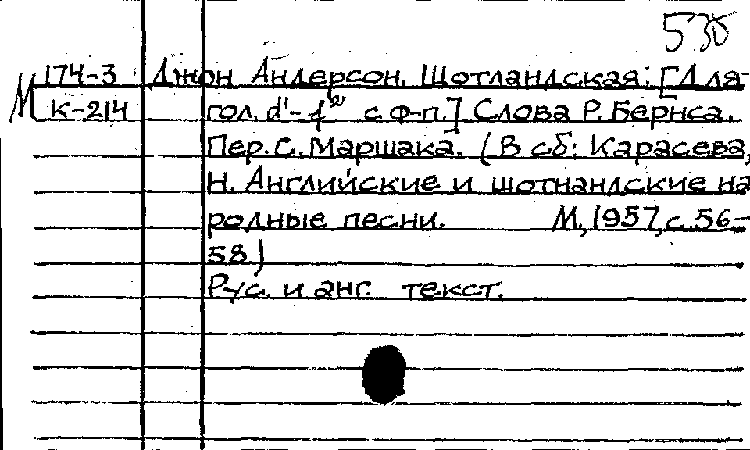 530
М 174-3 Джон Андерсон. Шотландская: [Для
К-214 гол. d'-f'' с ф-п.] Слова Р. Бернса.
Пер. С. Маршака. (В сб: Карасева,
Н. Английские и шотнандские на
родные песни. М., 1957, с. 56-
58)
Рус. и анг. текст.